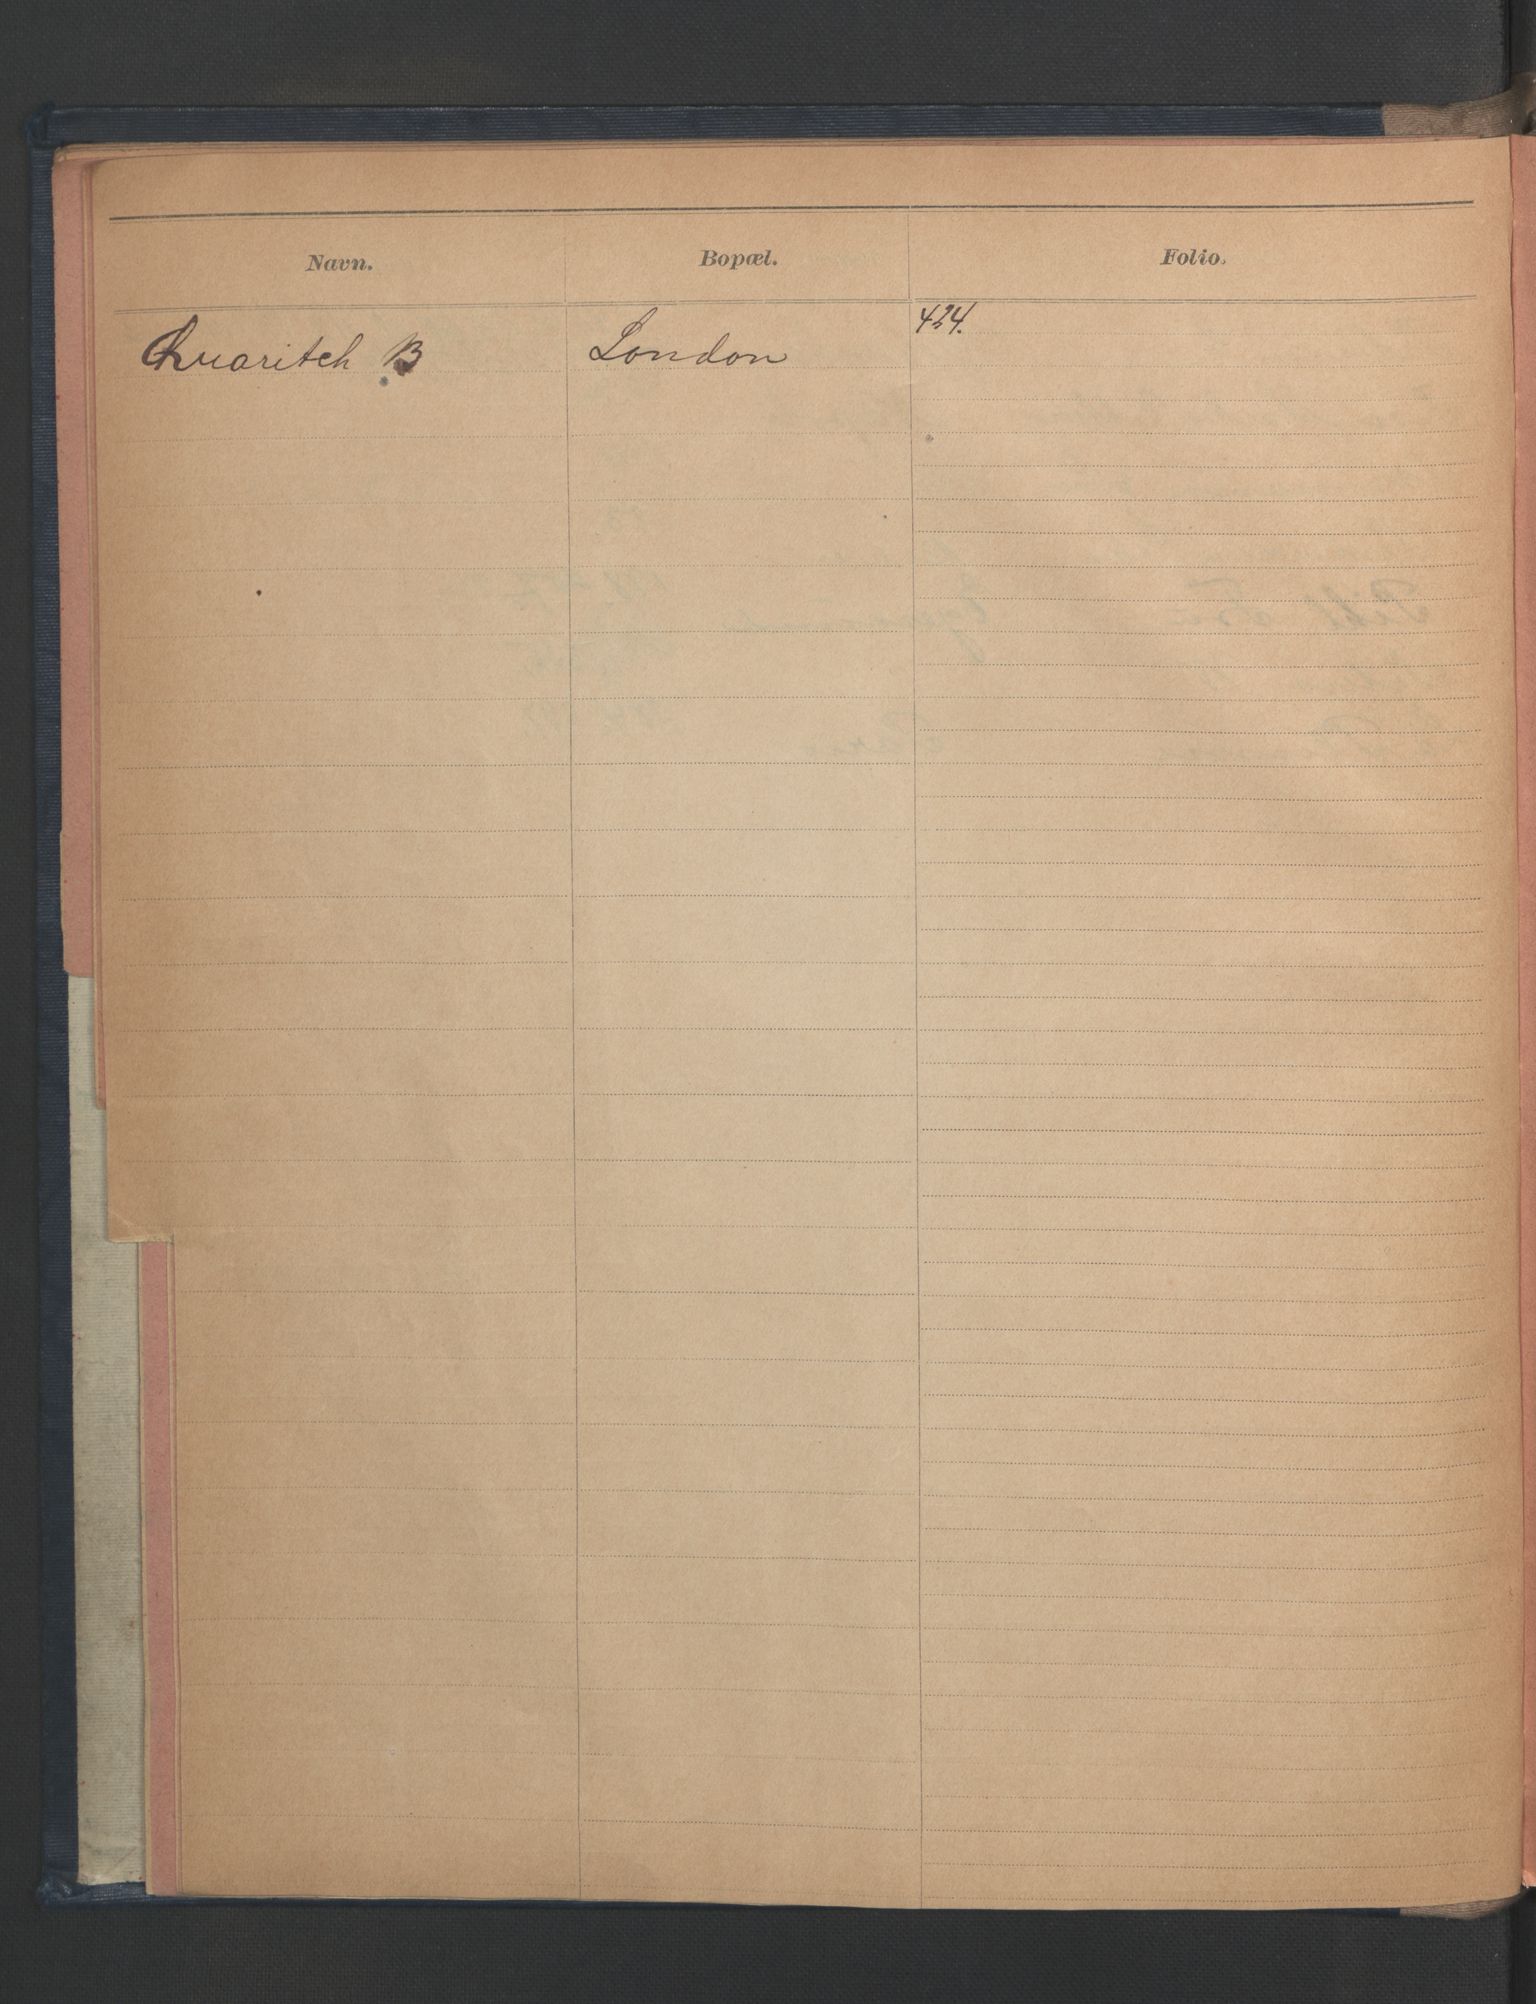 Navn. Bopæl. Folio.
Quaritch B London 424.